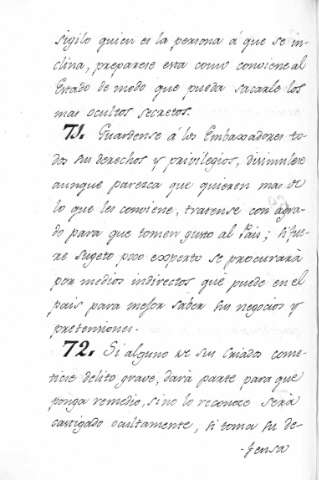 sigilo quien es la persona á que se in-
clina, preparese esta como conviene al
Estado de modo que pueda sacarle los
mas ocultos secretos.
71. Guardense á los Embaxadores to-
dos sus derechos y privilegios, disimulese
aunque parezca que quieren mas de
lo que les conviene, tratense con agra-
do para que tomen gusto al Pais; si fue-
re sugeto poco experto se procurará
por medios indirectos que quede en el
pais para mejor saber sus negocios y
pretensiones.
72. Si alguno de sus criados come-
tiere delito grave, dará parte para que
ponga remedio, si no lo reconoce será
castigado ocultamente, si toma su de-
-fensa